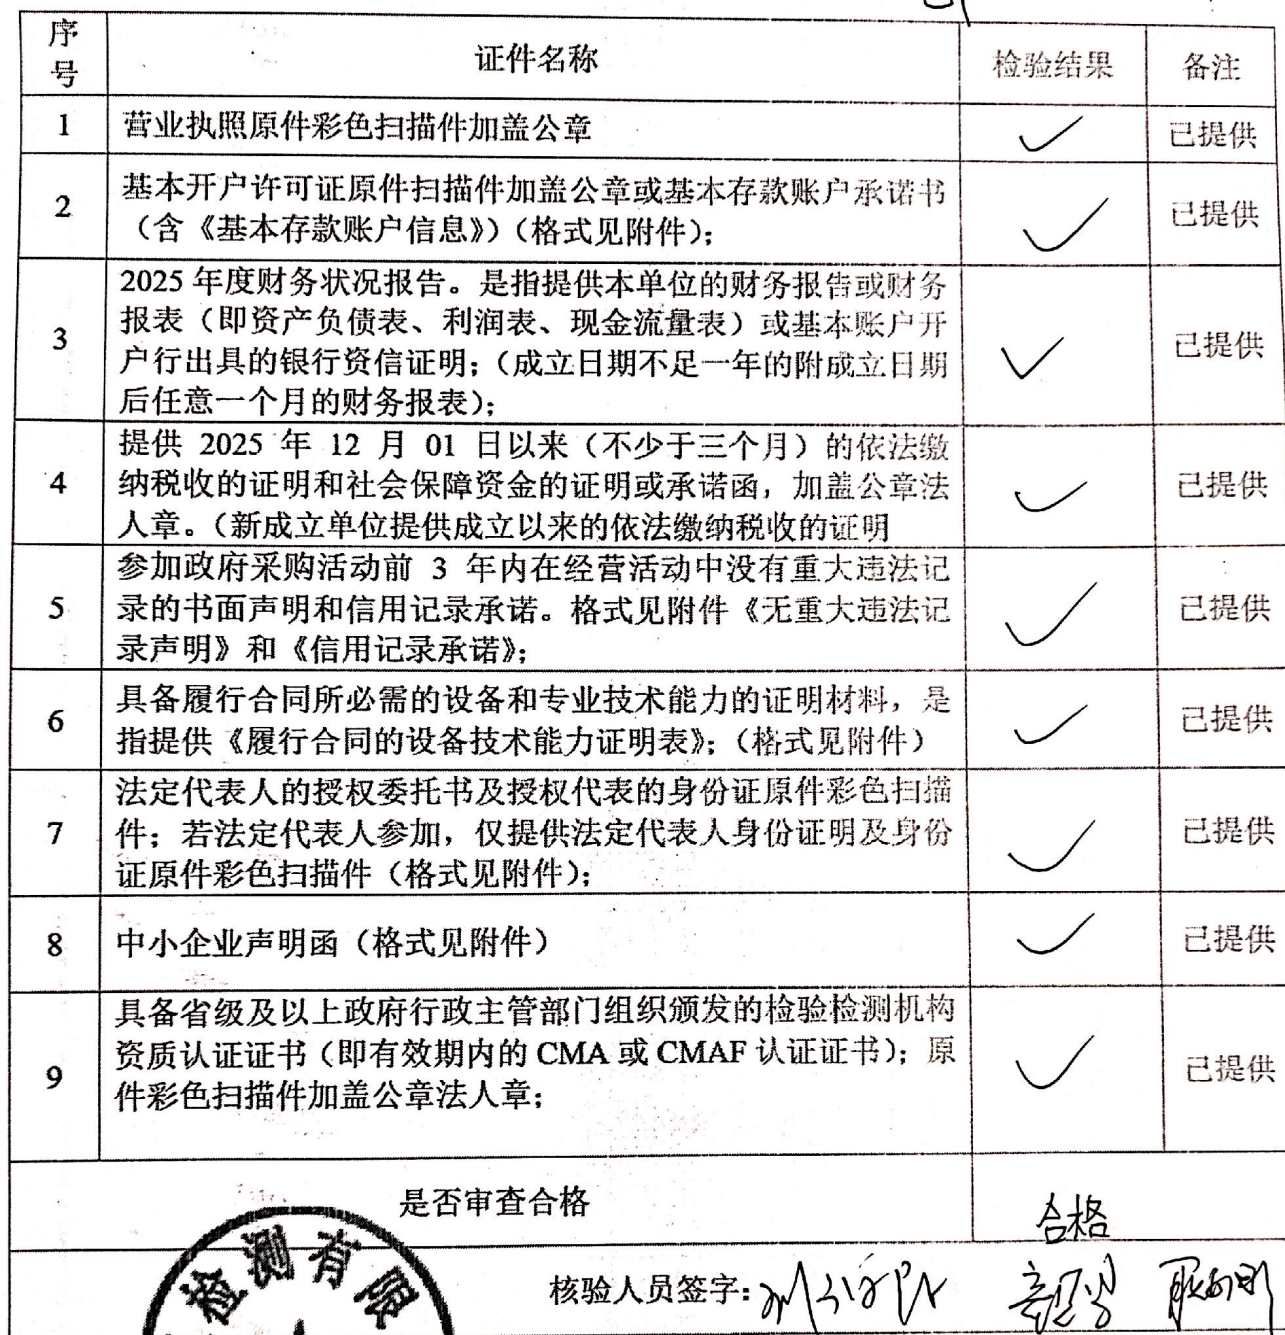 序号 证件名称 检验结果 备注
1 营业执照原件彩色扫描件加盖公章 ✓ 已提供
2 基本开户许可证原件扫描件加盖公章或基本存款账户承诺书
（含《基本存款账户信息》）（格式见附件）； ✓ 已提供
2025 年度财务状况报告。是指提供本单位的财务报告或财务
报表（即资产负债表、利润表、现金流量表）或基本账户开
3 户行出具的银行资信证明；（成立日期不足一年的附成立日期 ✓ 已提供
后任意一个月的财务报表）；
提供 2025 年 12 月 01 日以来（不少于三个月）的依法缴
4 纳税收的证明和社会保障资金的证明或承诺函，加盖公章法 ✓ 已提供
人章。（新成立单位提供成立以来的依法缴纳税收的证明
参加政府采购活动前 3 年内在经营活动中没有重大违法记
5 录的书面声明和信用记录承诺。格式见附件《无重大违法记 ✓ 已提供
录声明》和《信用记录承诺》；
6 具备履行合同所必需的设备和专业技术能力的证明材料，是
指提供《履行合同的设备技术能力证明表》；（格式见附件） ✓ 已提供
法定代表人的授权委托书及授权代表的身份证原件彩色扫描
7 件；若法定代表人参加，仅提供法定代表人身份证明及身份 ✓ 已提供
证原件彩色扫描件（格式见附件）；
8 中小企业声明函（格式见附件） ✓ 已提供
具备省级及以上政府行政主管部门组织颁发的检验检测机构
9 资质认证证书（即有效期内的 CMA 或 CMAF 认证证书）；原 ✓ 已提供
件彩色扫描件加盖公章法人章；
是否审查合格 合格
检测有限
核验人员签字：